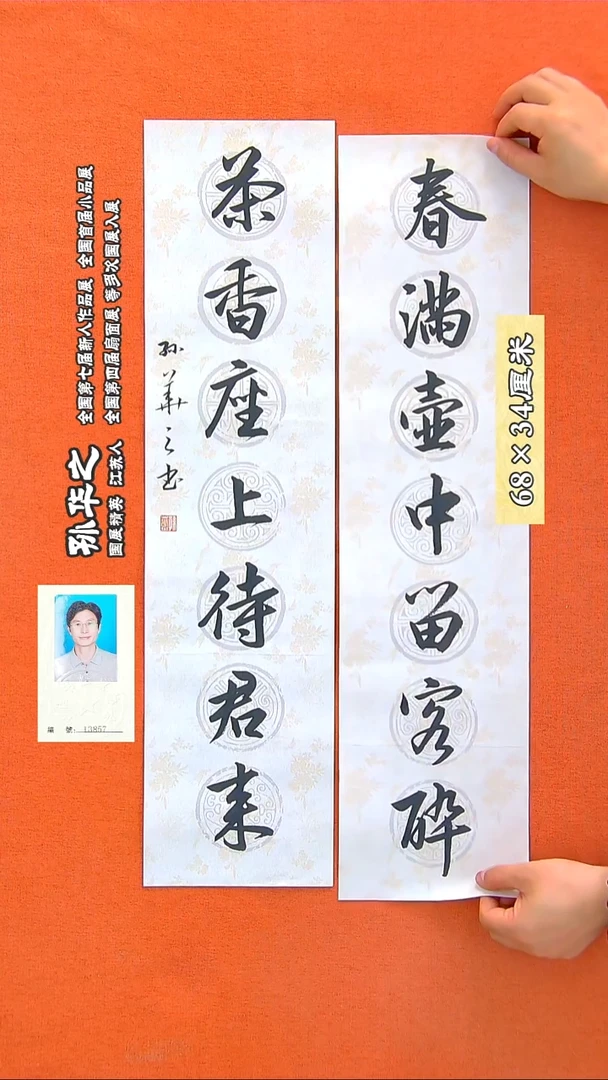 春满壶中留客醉
茶香座上待君来
孙华之书
孙华之
国展精英 江苏人
全国第七届新人作品展 全国首届小品展
全国第四届扇面展 等多次国展入展
68×34厘米
編 號：13857